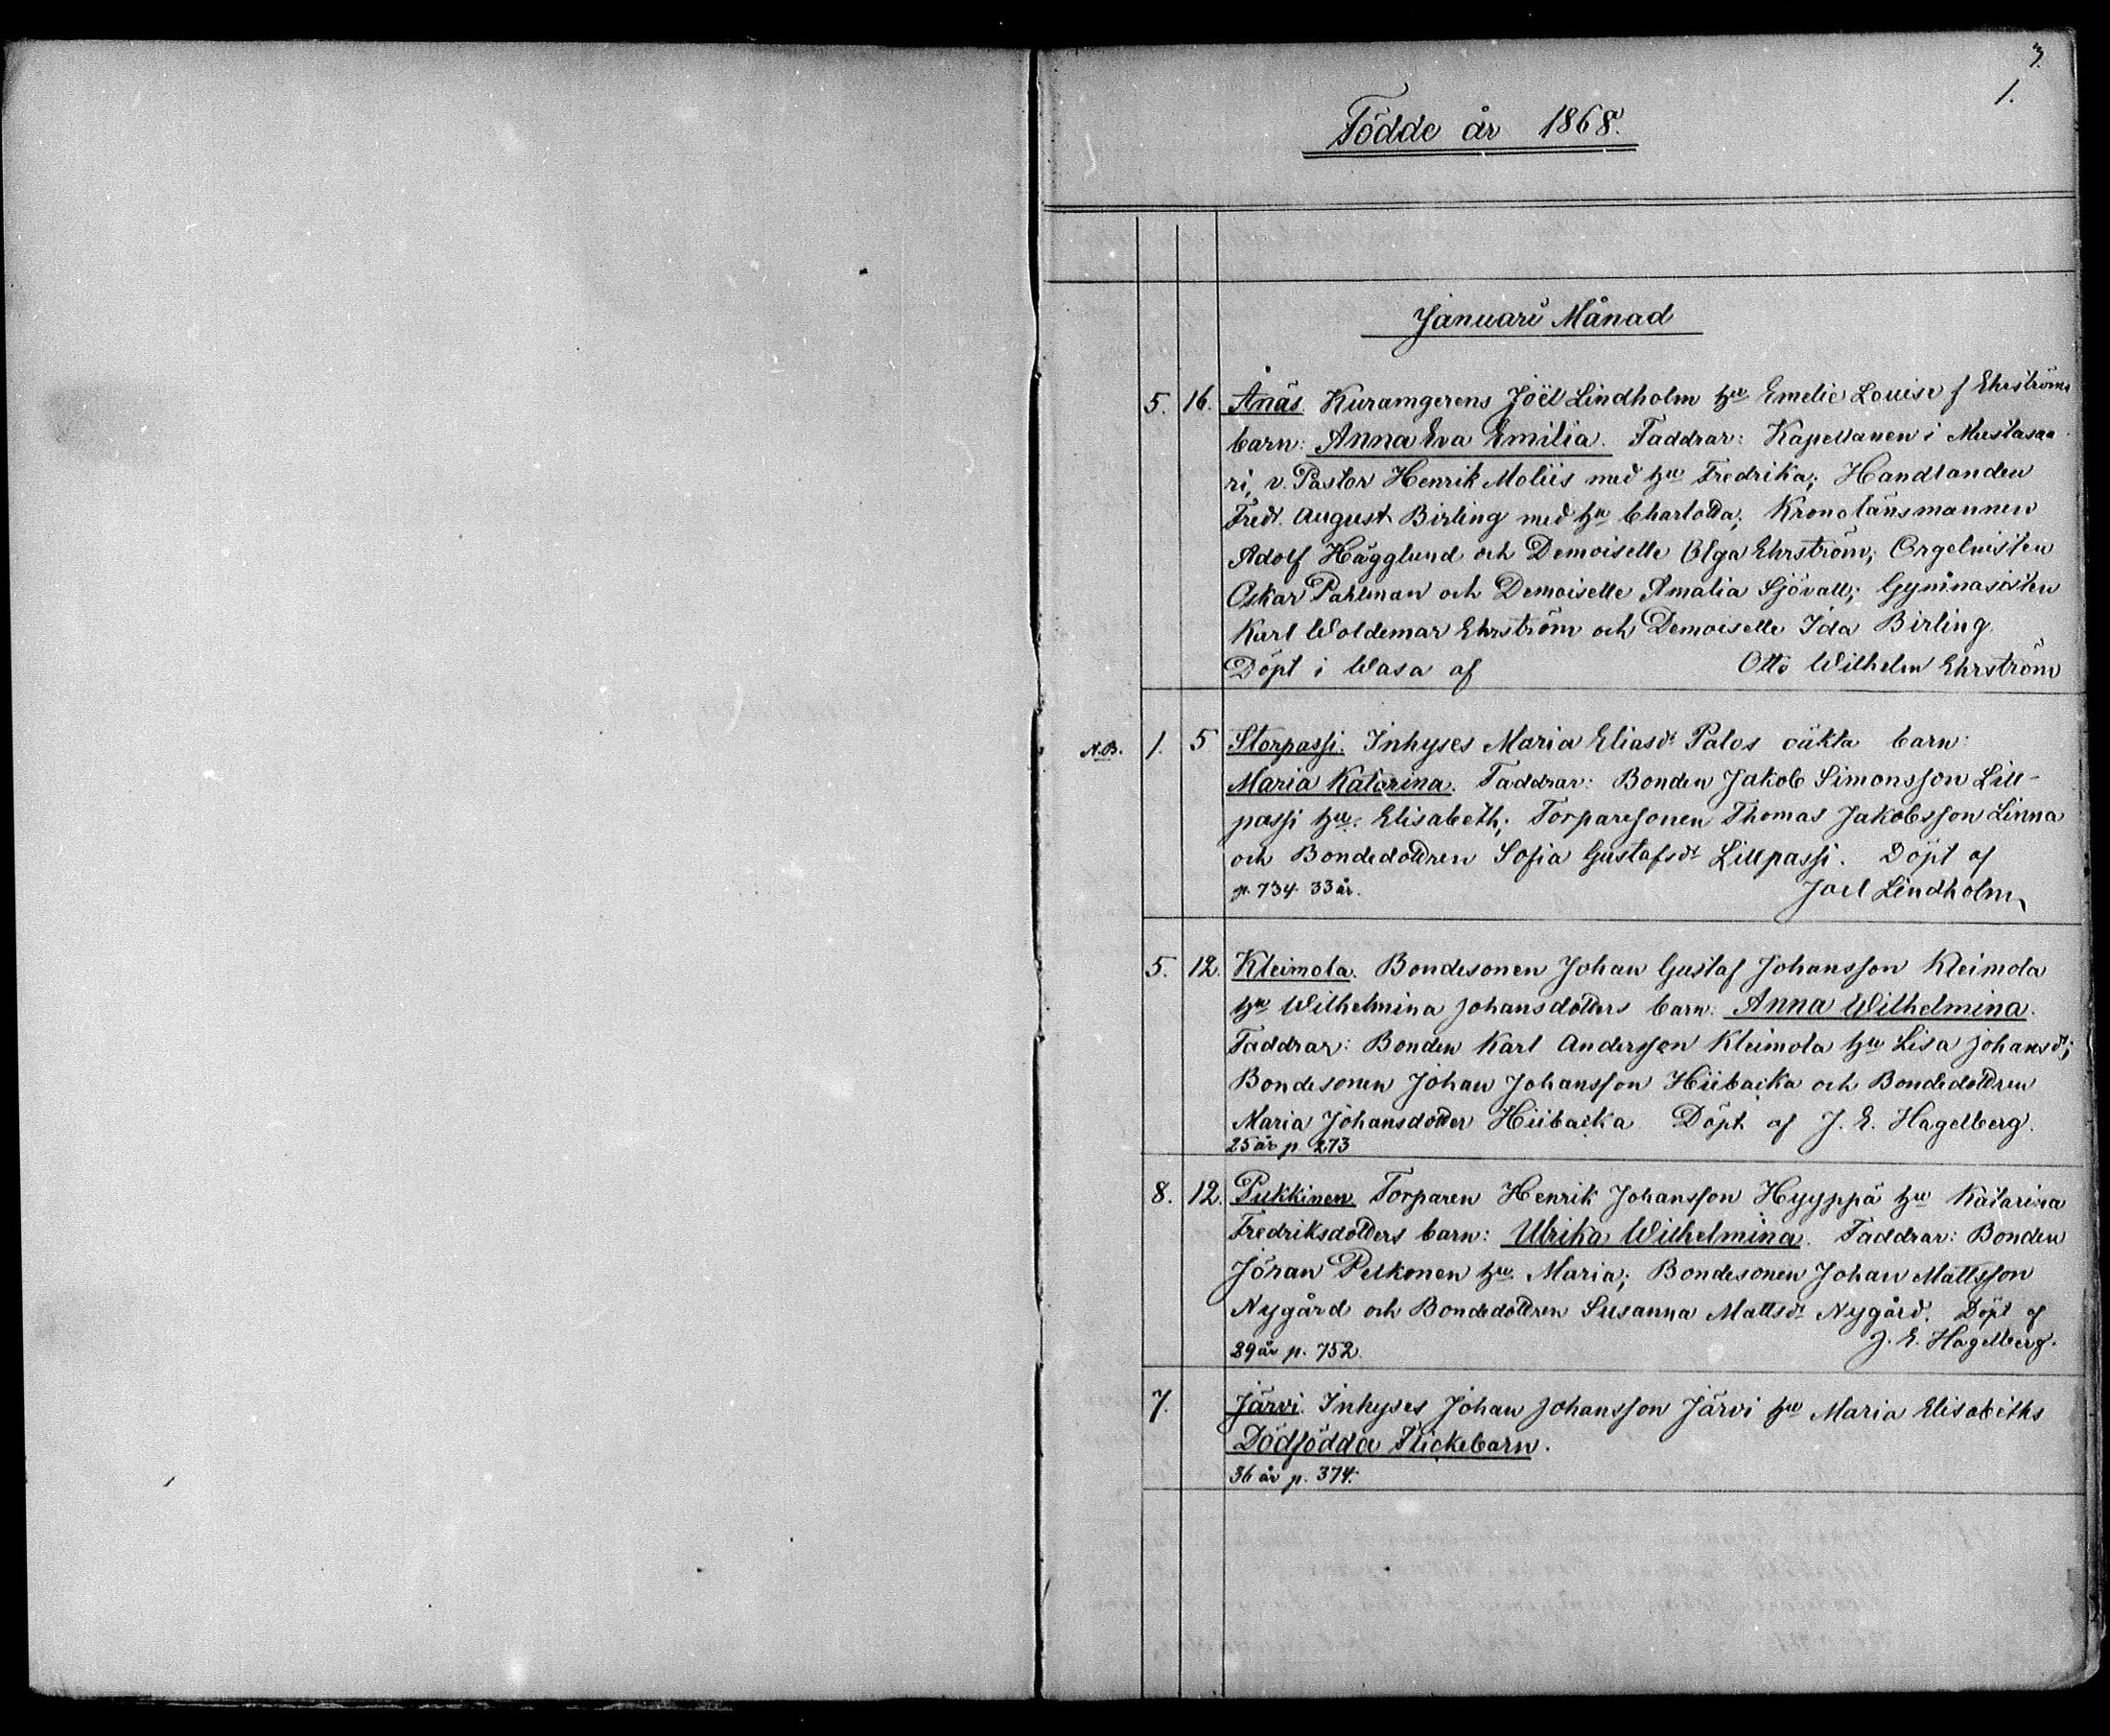 3.
1.
Födde år 1868.
Januari Månad
5. 16. Ånäs. Kuramgerens Joël Lindholm hu Emelie Louise f Ehrströms
barn: Anna Eva Emilia. Faddrar: Kapellanen i Mustasaa-
ri, v. Pastor Henrik Moliis med hu Fredrika; Handlanden
Fredr. August Birling med hu Charlotta; Kronolänsmannen
Adolf Hägglund och Demoiselle Olga Ehrström; Orgelnisten
Oskar Pahlman och Demoiselle Amalia Sjövall; Gymnasisten
Karl Woldemar Ehrström och Demoiselle Ida Birling.
Döpt i Wasa af Otto Wilhelm Ehrström
N.B. 1. 5 Storpassi. Inhyses Maria Eliasdr Palos oäkta barn:
Maria Katarina. Faddrar: Bonden Jakob Simonsson Lill-
passi hu: Elisabeth; Torparesonen Thomas Jakobsson Linna
och Bondedottren Sofia Gustafsdr Lillpassi. Döpt af
p. 734. 33 år. Joel Lindholm
5. 12. Kleimola. Bondesonen Johan Gustaf Johansson Kleimola
hu Wilhelmina Johansdotters barn: Anna Wilhelmina.
Faddrar: Bonden Karl Andersson Kleimola hu Lisa Johansdr;
Bondesonen Johan Johansson Hiibacka och Bondedottren
Maria Johansdotter Hiibacka. Döpt af J. E. Hagelberg.
25 år p. 273
8. 12. Pukkinen. Torparen Henrik Johansson Hyyppä hu Katarina
Fredriksdotters barn: Ulrika Wilhelmina. Faddrar: Bonden
Jöran Pelkonen hu Maria; Bondesonen Johan Mattsson
Nygård och Bondedottren Susanna Mattsdr Nygård. Döpt af
29 år p. 752. J. E. Hagelberg.
7. Järvi. Inhyses Johan Johansson Järvi hu Maria Elisabeths
Dödfödda Flickebarn.
36 år p. 374.